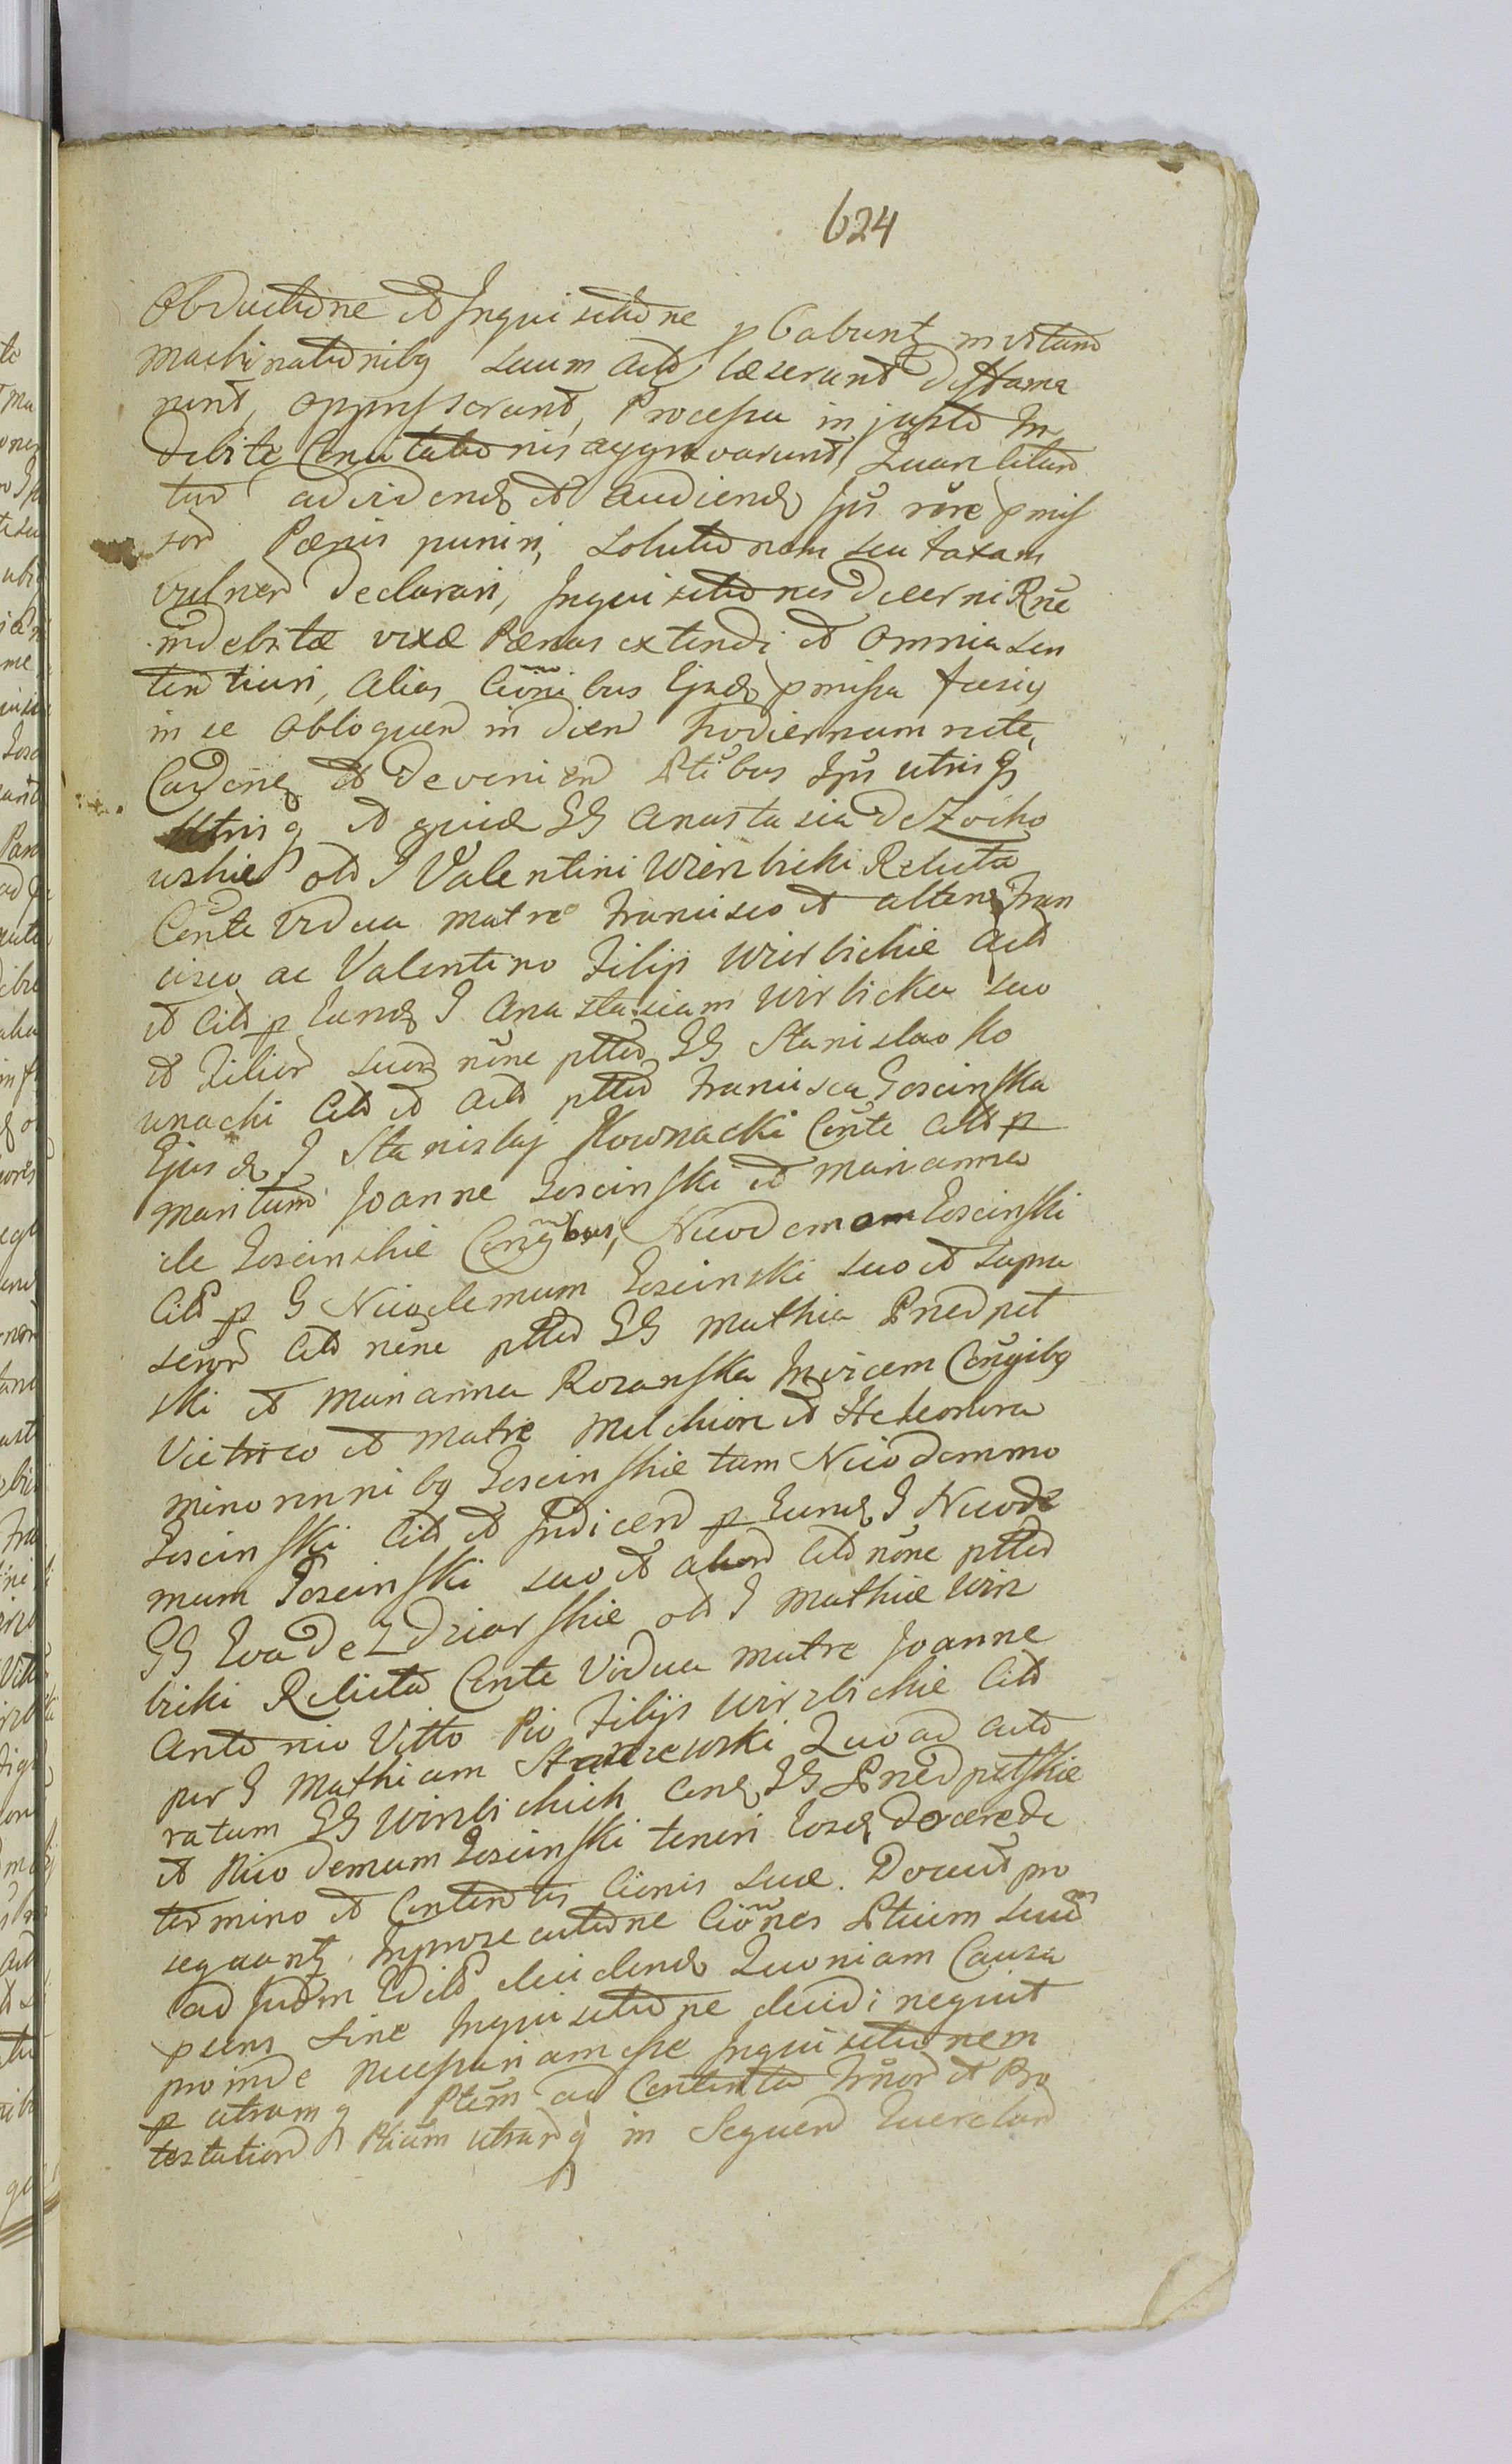 624
Obductione et Inquisitione pbabunt, invitam
machinationibq suum Acto læserunt Diffama
runt, oppresserunt, Processu injusto In
debite Concitationis aggravarunt, Quare Citan
tur ad videnḍ et audienḍ Ipŭ rŏre pmiss
sor Pœnis puniri, solutionem seu taxam
vulner Declarari, Inquisitiones Decerni Rñe
indebitæ vexæ Pœnas extendi et omnia sen
tentiari, alias Ciõnibus Ejusd pmissa fusiq
in se obloquen in diem hodiernum rite,
Caden et devenien Ptibus Ipŭ utrisq
utrisq et quidē GG Anastasia de Zocho
wskie olỏ G Valentini Wierzbicki Relicta
Cõnte Vidua matre Francisco et altero Fran
cisco ac Valentino Filijs Wierzbickie Acto
et Cito p Eanḍ G Anastasiam Wirzbicka suo
et Filior suor nõne ptto GG Stanislao Ko
wnacki Cito et Acto ptto Francisca Goscinska
Ejusḍ G Stanislaj Kownacki Cõnte Cito p
maritum Joanne Goscinski et Marianna
de Goscinskie Conjgbus, Nicodemom Goscinski
Cito p G Nicodemum Goscinski suo et supra
scrior Cito nõne ptto GG Mathia Przedpet
ski et Marianna Rozanska Invicem Conjgibq
Victrico et Matre Melchiore et Heleonora
minorennibq Goscinskie tum Nicodemmo
Goscinski Cito et Indicen p Eunḍ G Nicode
mum Goscinski suo et alior Cito nõne ptto
GG Eva de Zdziarskie olỏ G Mathiæ Wirz
bicki Relicta Cõnte Vidua matre Joanne
Antonio Vitto Pio Filijs Wirzbickie Cito
per G Mathiam Starzewski Quoad acto
ratum GG Wirzbickich Conḍ GG Przedpetskie
et Nicodemum Goscinski teneri Eosḍ Docere de
termino et Contentis Ciõnis suæ. Docuit pro
sequant. In prosecutione Ciõnes Ptium suar
ad Judm Edito deciḍenḍ Quoniam Causa
psens sine Inquisitione decidi nequit
proinde necessariam esse Inquisitionem
p utramq Ptem ad Contenta Trnor et Pro
testation Ptium utrarq in Sequen Querelar